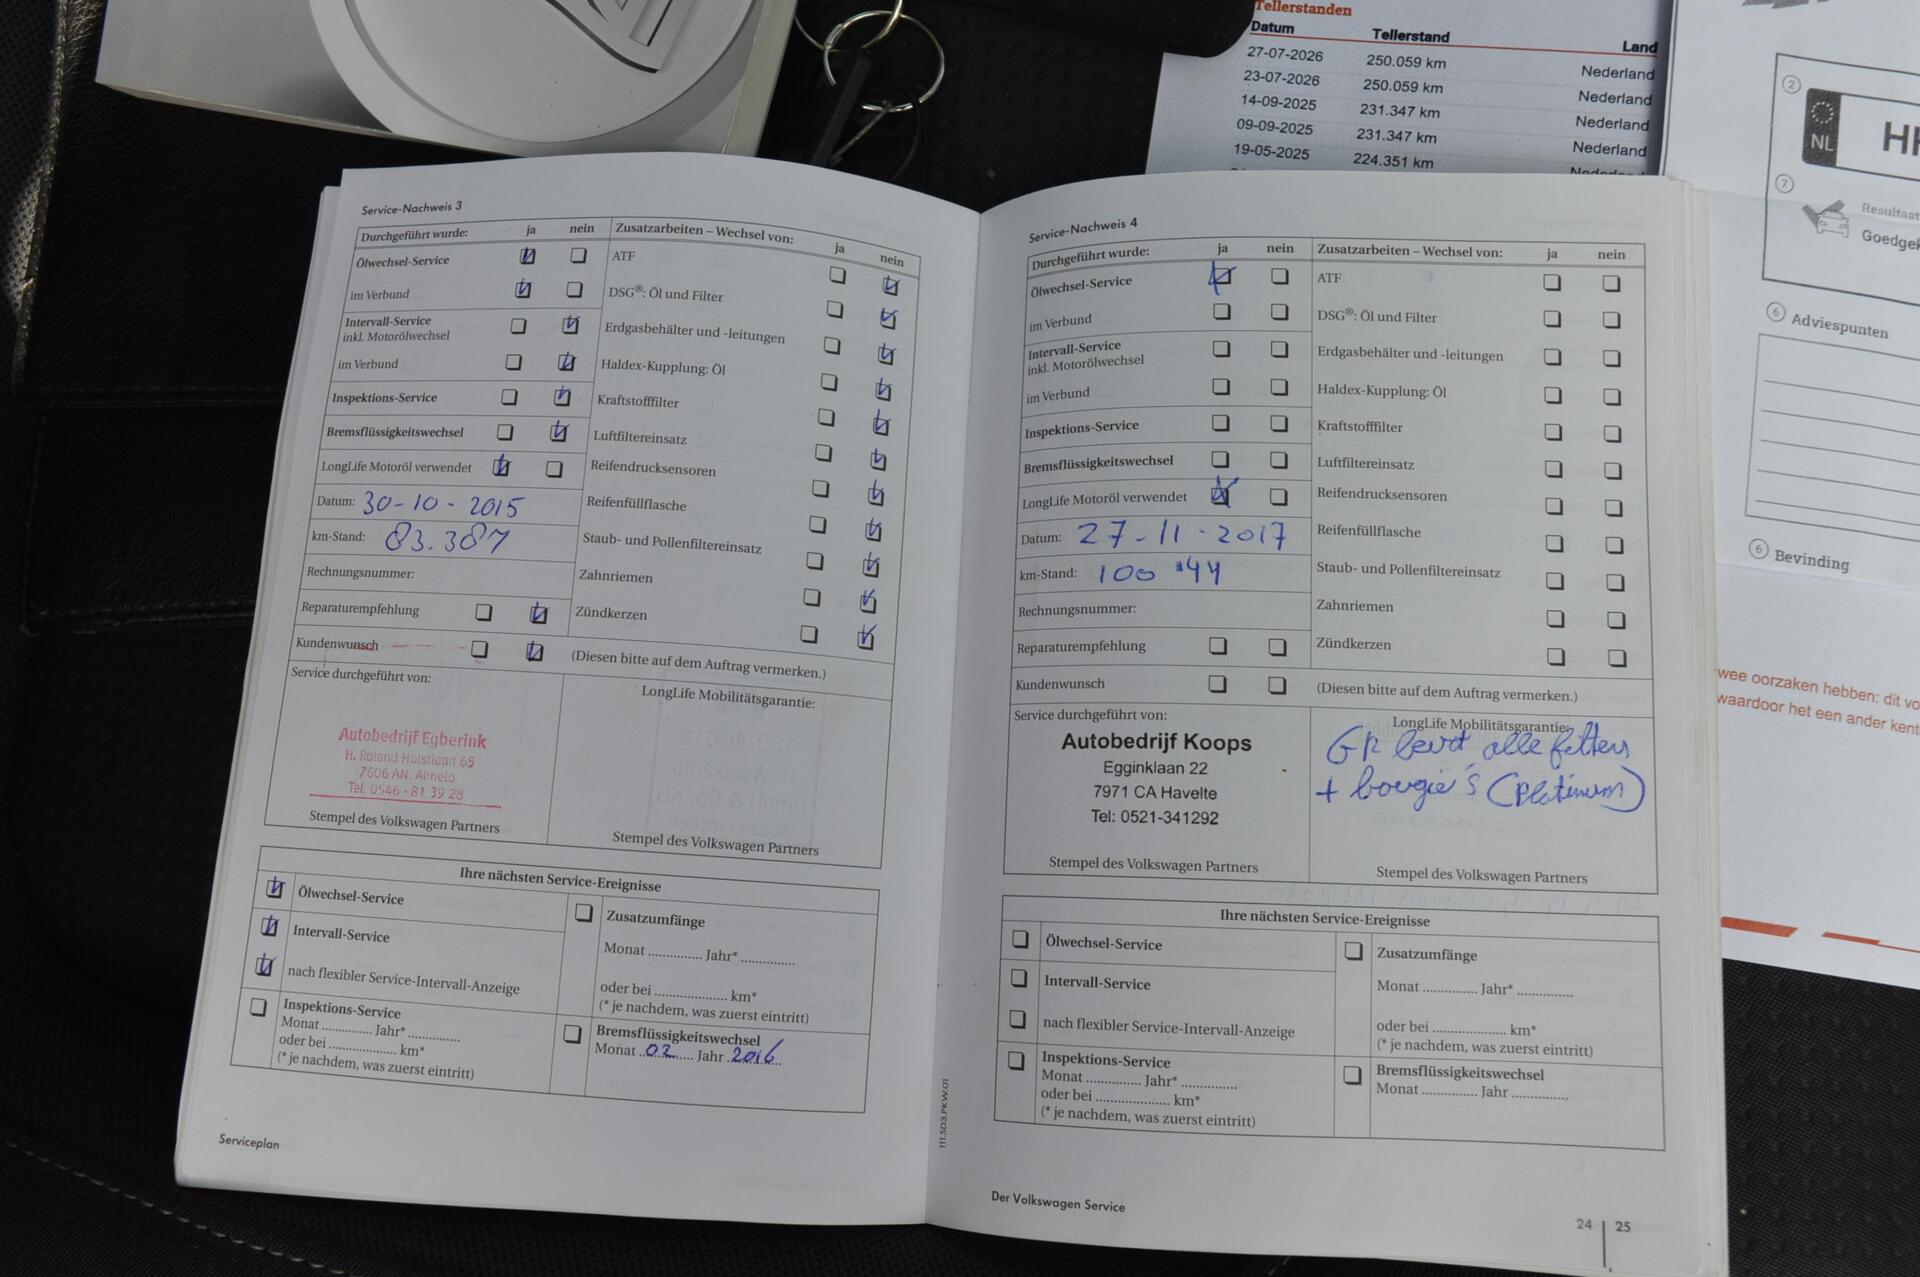 Tellerstanden
Datum Tellerstand Land
27-07-2026 250.059 km Nederland
23-07-2026 250.059 km Nederland
14-09-2025 231.347 km Nederland
09-09-2025 231.347 km Nederland
19-05-2025 224.351 km Nederland
Nederland
2
NL
7
Resultaat
6 Adviespunten
6 Bevinding
wee oorzaken hebben: dit
waardoor het een ander
Service-Nachweis 3
Durchgeführt wurde: ja nein Zusatzarbeiten – Wechsel von: ja nein
Ölwechsel-Service ATF
im Verbund DSG®: Öl und Filter
Intervall-Service Erdgasbehälter und -leitungen
inkl. Motorölwechsel
im Verbund Haldex-Kupplung: Öl
Inspektions-Service Kraftstofffilter
Bremsflüssigkeitswechsel Luftfiltereinsatz
LongLife Motoröl verwendet Reifendrucksensoren
Datum: 30-10-2015 Reifenfüllflasche
km-Stand: 83.387 Staub- und Pollenfiltereinsatz
Rechnungsnummer: Zahnriemen
Reparaturempfehlung Zündkerzen
Kundenwunsch (Diesen bitte auf dem Auftrag vermerken.)
Service durchgeführt von: LongLife Mobilitätsgarantie:
Autobedrijf Egberink
H. Roland Holstlaan 65
7606 AN Almelo
Tel. 0546 - 81 39 28
Stempel des Volkswagen Partners Stempel des Volkswagen Partners
Ihre nächsten Service-Ereignisse
Ölwechsel-Service Zusatzumfänge
Intervall-Service Monat .............. Jahr* ..............
nach flexibler Service-Intervall-Anzeige oder bei ................... km*
(* je nachdem, was zuerst eintritt)
Inspektions-Service Bremsflüssigkeitswechsel
Monat .............. Jahr* .............. Monat 02 Jahr 2016
oder bei ................... km*
(* je nachdem, was zuerst eintritt)
Serviceplan
111.5D3.PKW.01
Service-Nachweis 4
Durchgeführt wurde: ja nein Zusatzarbeiten – Wechsel von: ja nein
Ölwechsel-Service ATF
im Verbund DSG®: Öl und Filter
Intervall-Service Erdgasbehälter und -leitungen
inkl. Motorölwechsel
im Verbund Haldex-Kupplung: Öl
Inspektions-Service Kraftstofffilter
Bremsflüssigkeitswechsel Luftfiltereinsatz
LongLife Motoröl verwendet Reifendrucksensoren
Datum: 27-11-2017 Reifenfüllflasche
km-Stand: 100 Staub- und Pollenfiltereinsatz
Rechnungsnummer: Zahnriemen
Reparaturempfehlung Zündkerzen
Kundenwunsch (Diesen bitte auf dem Auftrag vermerken.)
Service durchgeführt von: LongLife Mobilitätsgarantie:
Autobedrijf Koops alle filters
Egginklaan 22 + bougie's (platinum)
7971 CA Havelte
Tel: 0521-341292
Stempel des Volkswagen Partners Stempel des Volkswagen Partners
Ihre nächsten Service-Ereignisse
Ölwechsel-Service Zusatzumfänge
Intervall-Service Monat .............. Jahr* ..............
nach flexibler Service-Intervall-Anzeige oder bei ................... km*
(* je nachdem, was zuerst eintritt)
Inspektions-Service Bremsflüssigkeitswechsel
Monat .............. Jahr* .............. Monat .............. Jahr ..............
oder bei ................... km*
(* je nachdem, was zuerst eintritt)
Der Volkswagen Service
24 | 25